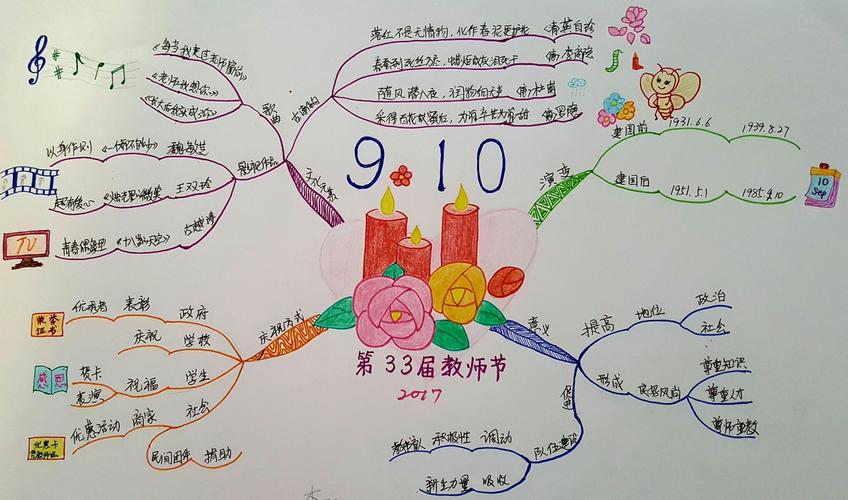 9.10
第33届教师节
2017
文化元素
歌曲
《每当我走过老师窗前》
《老师我想你》
《长大后我就成了你》
古诗词
落红不是无情物，化作春泥更护花 清 龚自珍
春蚕到死丝方尽，蜡炬成灰泪始干 唐 李商隐
随风潜入夜，润物细无声 唐 杜甫
采得百花成蜜后，为谁辛苦为谁甜 唐 罗隐
影视作品
以身作则 《一个都不能少》 魏敏芝
王双玲
青春偶像型 《十八岁的天空》 古越涛
TV
演变
建国前 1931.6.6 1939.8.27
建国后 1951.5.1 1985.9.10
10
Sep
庆祝方式
政府 表彰 优秀者
学校 庆祝
学生 祝福 贺卡
表演
社会 商家 优惠活动
民间团体 捐助
荣誉
证书
感恩
优惠卡
意义
提高 地位 政治
社会
形成 良好风尚 尊重知识
尊重人才
尊师重教
促进
队伍建设 调动 积极性 教师队
吸收 新生力量